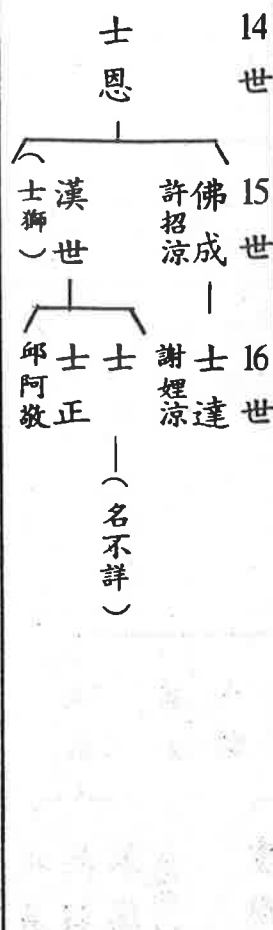 14世
士恩
15世
佛成
許招涼
漢世
（士獅）
16世
士達
謝娌涼
士
（名不詳）
士正
邱阿敬